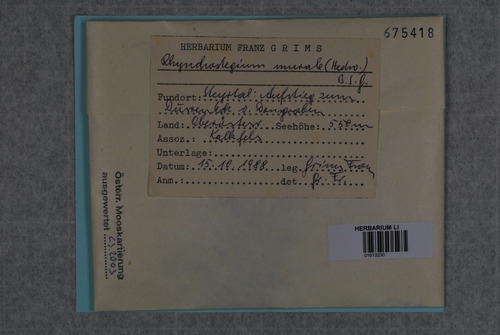 675418
HERBARIUM FRANZ GRIMS
Rhynchostegium murale (Hedw.)
B.S.G.
Fundort: Steyrtal: Aufstieg zum
Land: Oberösterr. Seehöhe: 550m
Assoz.: Kalkfels
Unterlage:
Datum: 15.10.1988 leg. Grims Franz
Anm.: det. Gr. Fr.
Österr. Mooskartierung
ausgewertet
HERBARIUM LI